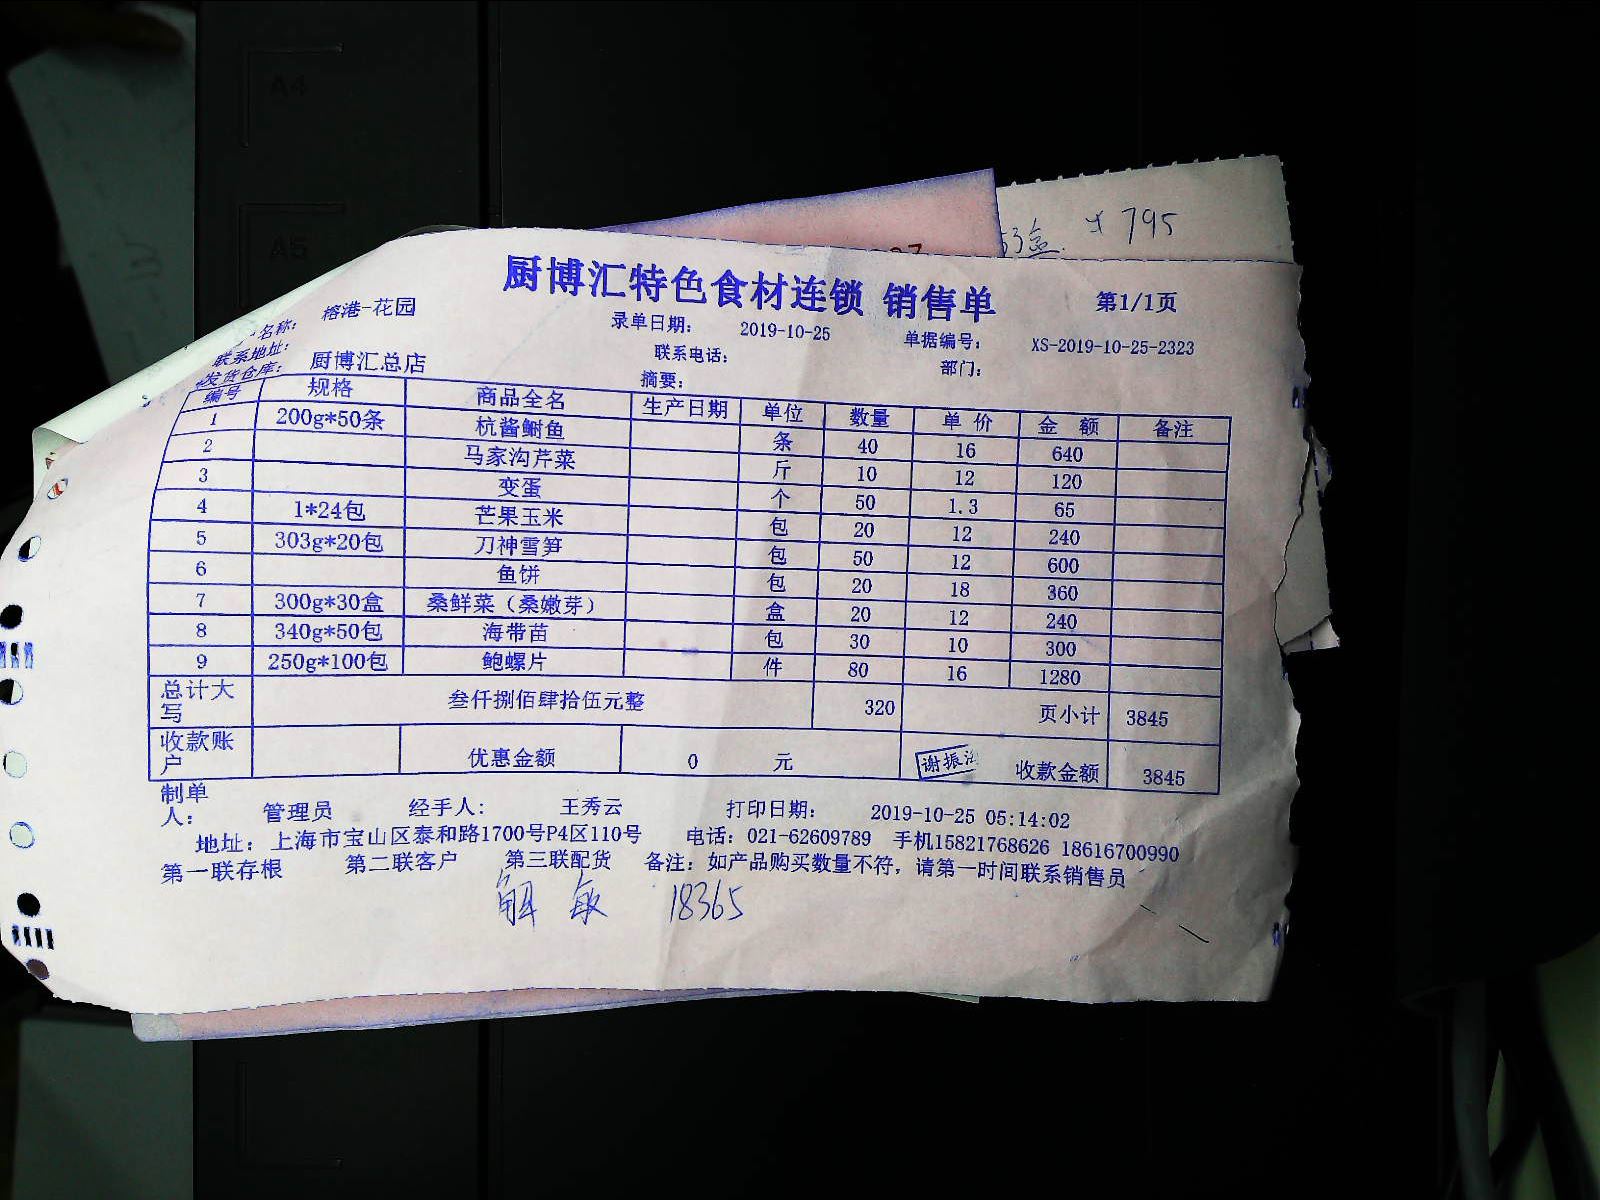 A4
A5
盒. ¥795
厨博汇特色食材连锁 销售单 第1/1页
名称: 榕港-花园 录单日期: 2019-10-25 单据编号: XS-2019-10-25-2323
联系地址: 联系电话: 部门:
发货仓库: 厨博汇总店 摘要:
编号 规格 商品全名 生产日期 单位 数量 单价 金额 备注
1 200g*50条 杭酱鮒鱼 条 40 16 640
2 马家沟芹菜 斤 10 12 120
3 变蛋 个 50 1.3 65
4 1*24包 芒果玉米 包 20 12 240
5 303g*20包 刀神雪笋 包 50 12 600
6 鱼饼 包 20 18 360
7 300g*30盒 桑鲜菜（桑嫩芽） 盒 20 12 240
8 340g*50包 海带苗 包 30 10 300
9 250g*100包 鲍螺片 件 80 16 1280
总计大写 叁仟捌佰肆拾伍元整 320 页小计 3845
收款账户 优惠金额 0 元 谢振 收款金额 3845
制单人: 管理员 经手人: 王秀云 打印日期: 2019-10-25 05:14:02
地址: 上海市宝山区泰和路1700号P4区110号 电话: 021-62609789 手机15821768626 18616700990
第一联存根 第二联客户 第三联配货 备注: 如产品购买数量不符, 请第一时间联系销售员
解敏 18365